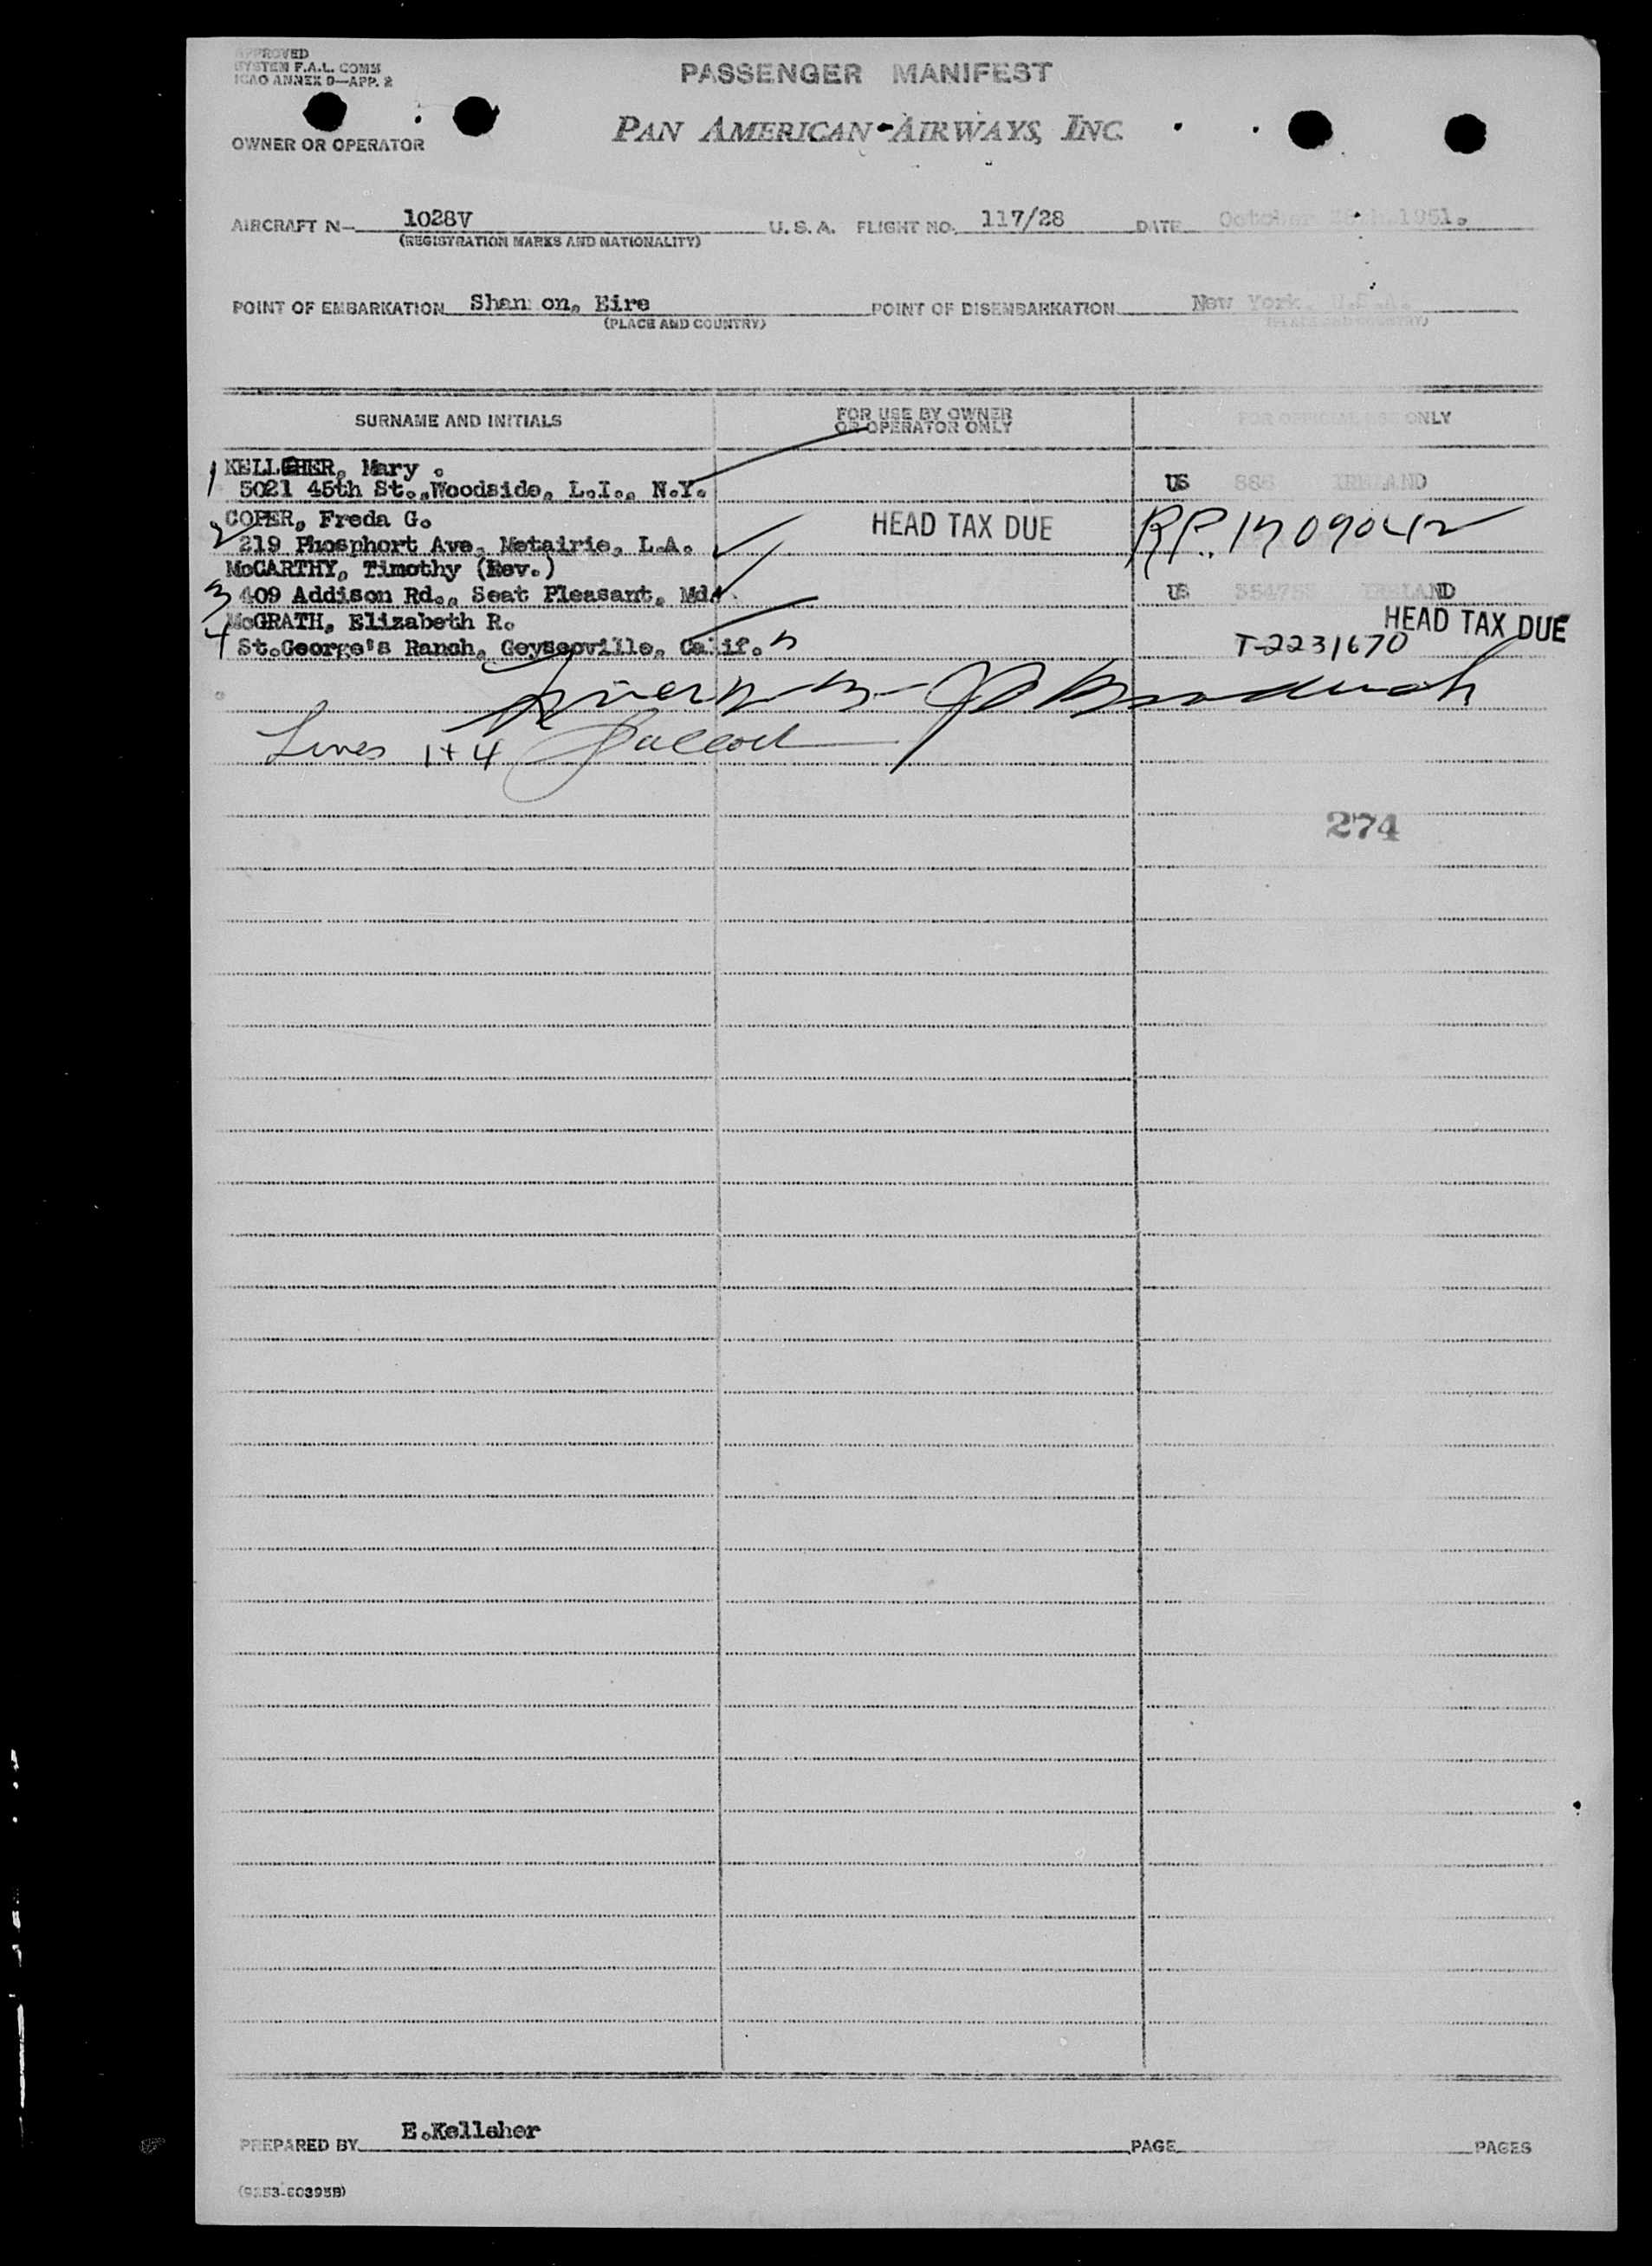 APPROVED
SYSTEM F.A.L. COMM
ICAO ANNEX 9—APP. 2
PASSENGER MANIFEST
OWNER OR OPERATOR
PAN AMERICAN AIRWAYS, INC.
AIRCRAFT N— 1028V U.S.A. FLIGHT NO. 117/28 DATE October 1951.
(REGISTRATION MARKS AND NATIONALITY)
POINT OF EMBARKATION Shan on, Eire POINT OF DISEMBARKATION New York, U.S.A.
(PLACE AND COUNTRY) (PLACE AND COUNTRY)
SURNAME AND INITIALS FOR USE BY OWNER OR OPERATOR ONLY FOR OFFICIAL USE ONLY
1 KELLEHER, Mary .
5021 45th St.,Woodside, L.I., N.Y. US 886 IRELAND
2 COPER, Freda G. HEAD TAX DUE RP. 1709042
219 Phosphort Ave, Metairie, L.A.
McCARTHY, Timothy (Rev.)
3 409 Addison Rd., Seat Pleasant, Md. US IRELAND
4 McGRATH, Elizabeth R. HEAD TAX DUE
St.George's Ranch, Geyserville, Calif. T-2231670
Lines 1+4
274
PREPARED BY E.Kelleher PAGE PAGES